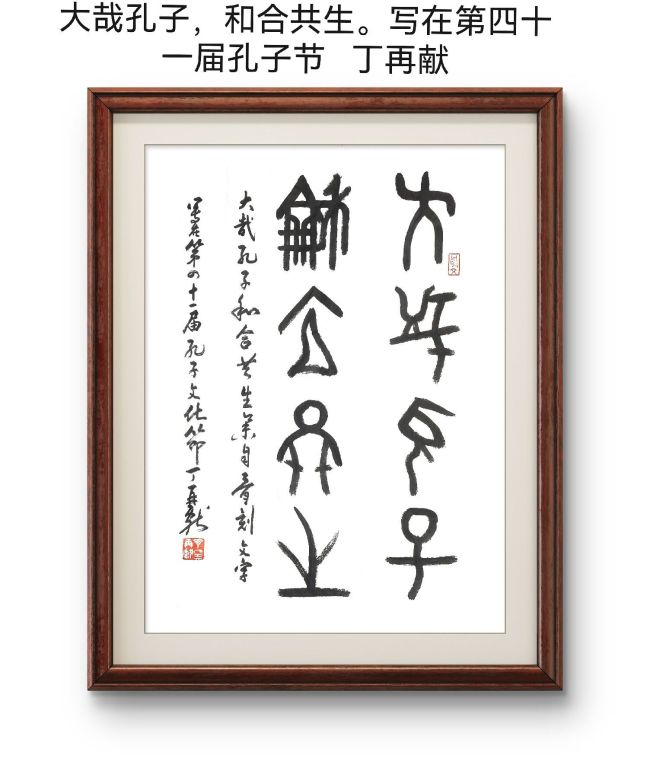 大哉孔子，和合共生。写在第四十
一届孔子节 丁再献
大哉孔子
和合共生
大哉孔子和合共生集自骨刻文字
写在第四十一届孔子文化节丁再献